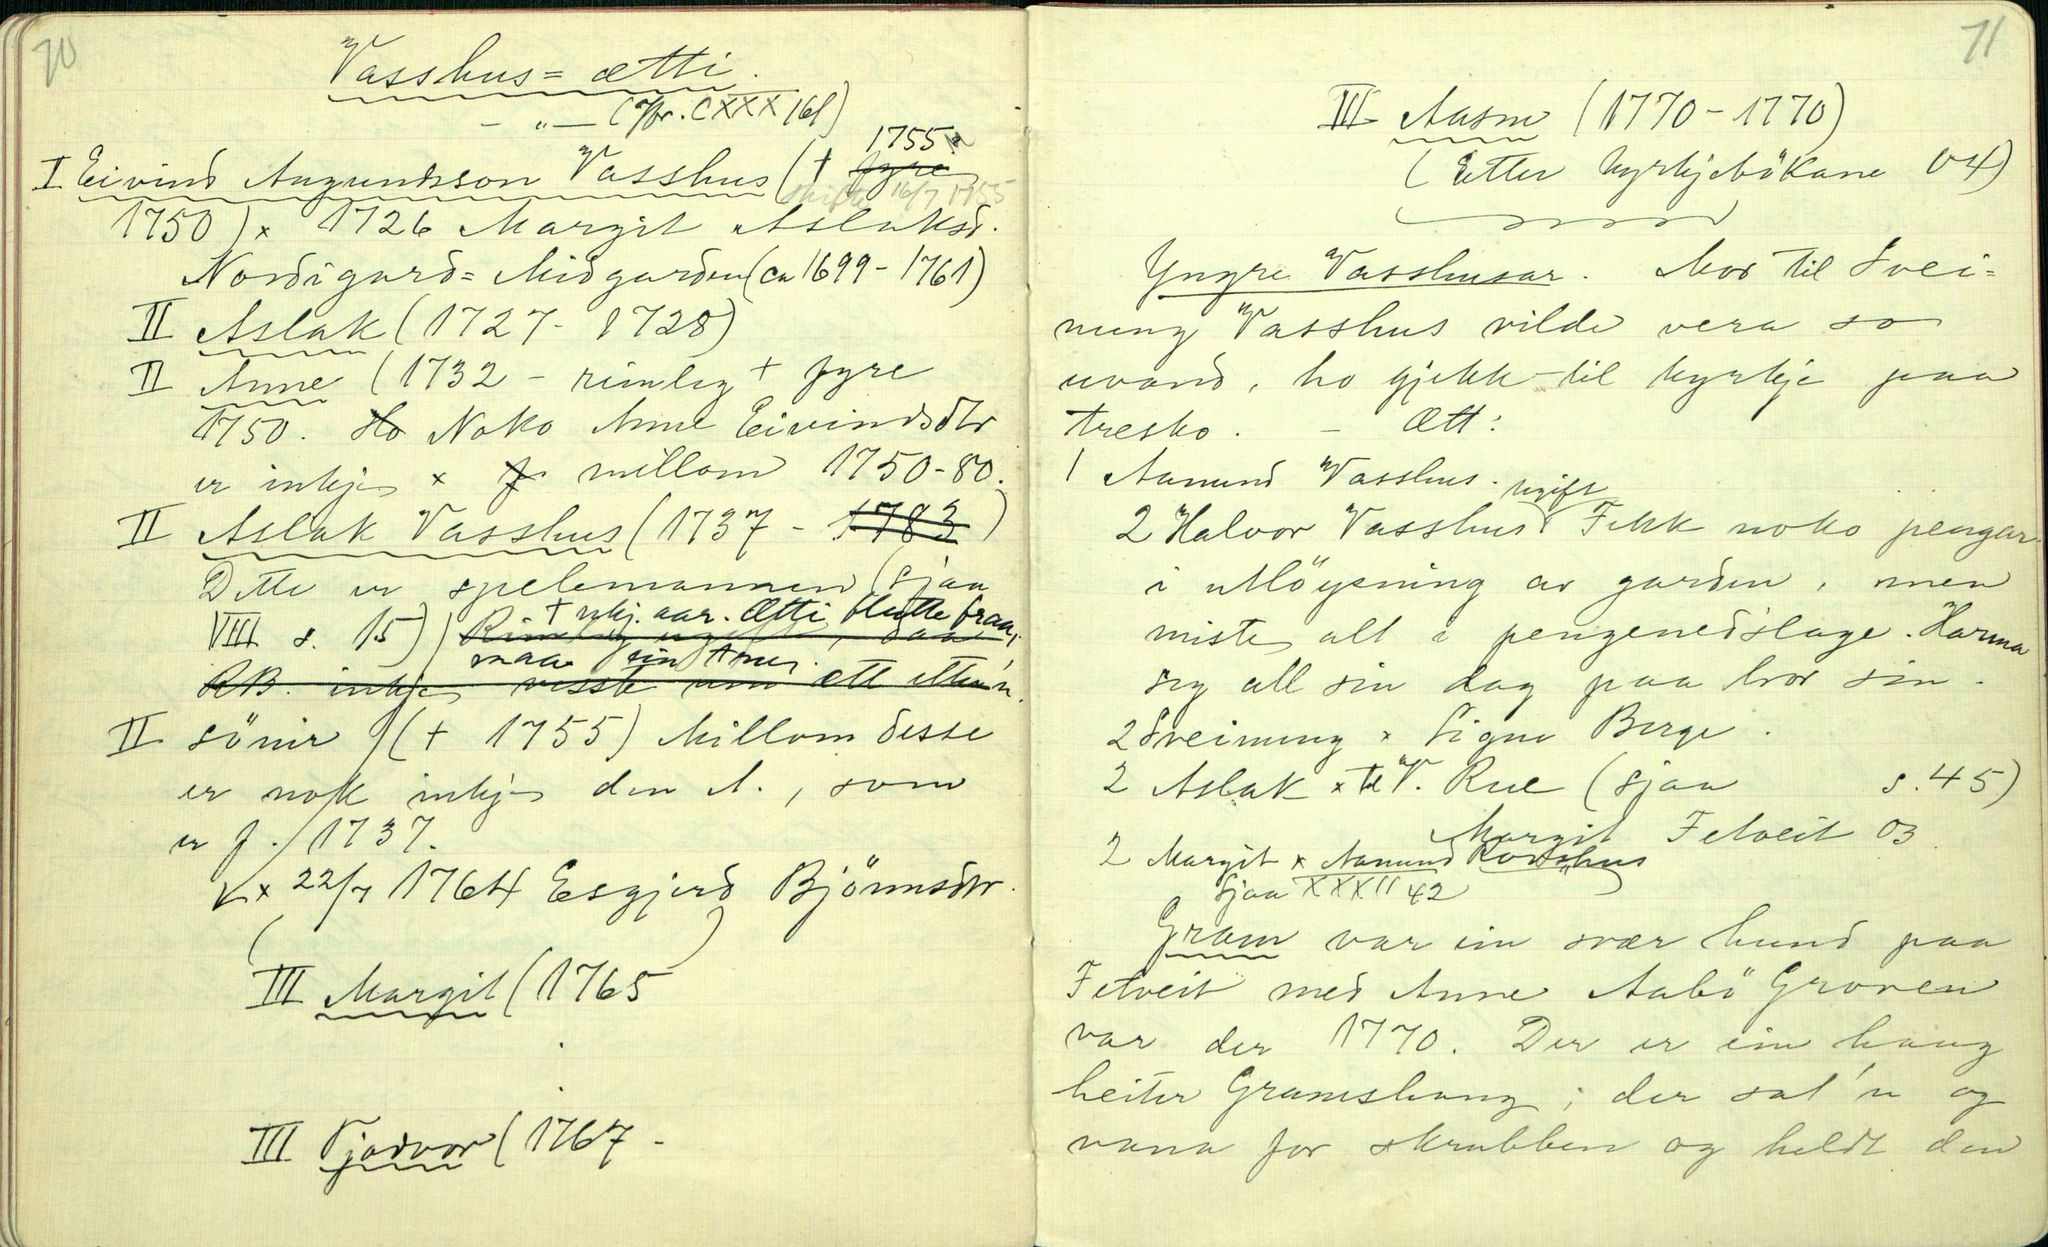 70
Vasshus-ætti.
— " — (Jfr. CXXX 161)
1755.
I Eivind Augundsson Vasshus († fyre
skifte 16/7 1755
1750) x 1726 Margit Aslaksd.
Nordigard-Midgarden (ca 1699-1761)
II Aslak (1727-1728)
II Anne (1732 - rimleg † fyre
1750. Ho Noko Anne Eivindsdtr
er inkje x f millom 1750-80.
II Aslak Vasshus (1737 - 1783)
Dette er spelemannen (sjaa
VIII s. 15)
† ukj. aar. Ætti flutte fraa,
maa
RB. inkje visste um ætt etter'n.
II sönir (+ 1755) Millom desse
er nok inkje den A., som
er f. 1737.
x 22/7 1764 Esgjerd Björnsdtr.
III Margit (1765
III Tjodvor (1767 -
71
III Aasne (1770-1770)
(Etter kyrkjebökane 04)
Yngre Vasshusar. Mor til Svei-
nung Vasshus vilde vera so
uvand, ho gjekk til kyrkje paa
tresko. — Ætt:
1 Aamund Vasshus.
ugift
2 Halvor Vasshus. Fekk noko pengar
i utlöysning av garden, men
miste alt i pengenedslage. Harma
seg all sin dag paa bror sin.
2 Sveinung x Signe Berge.
2 Aslak x til V. Rue (sjaa s. 45)
Margit Fetveit 03
2 Margit x Aamund Rorshus
sjaa XXXII 42
Gram var ein svær hund paa
Fetveit med Anne Aabö Groven
var der 1770. Der er ein haug
heiter Gramshaug; der sat'n og
vana for skrubben og heldt den